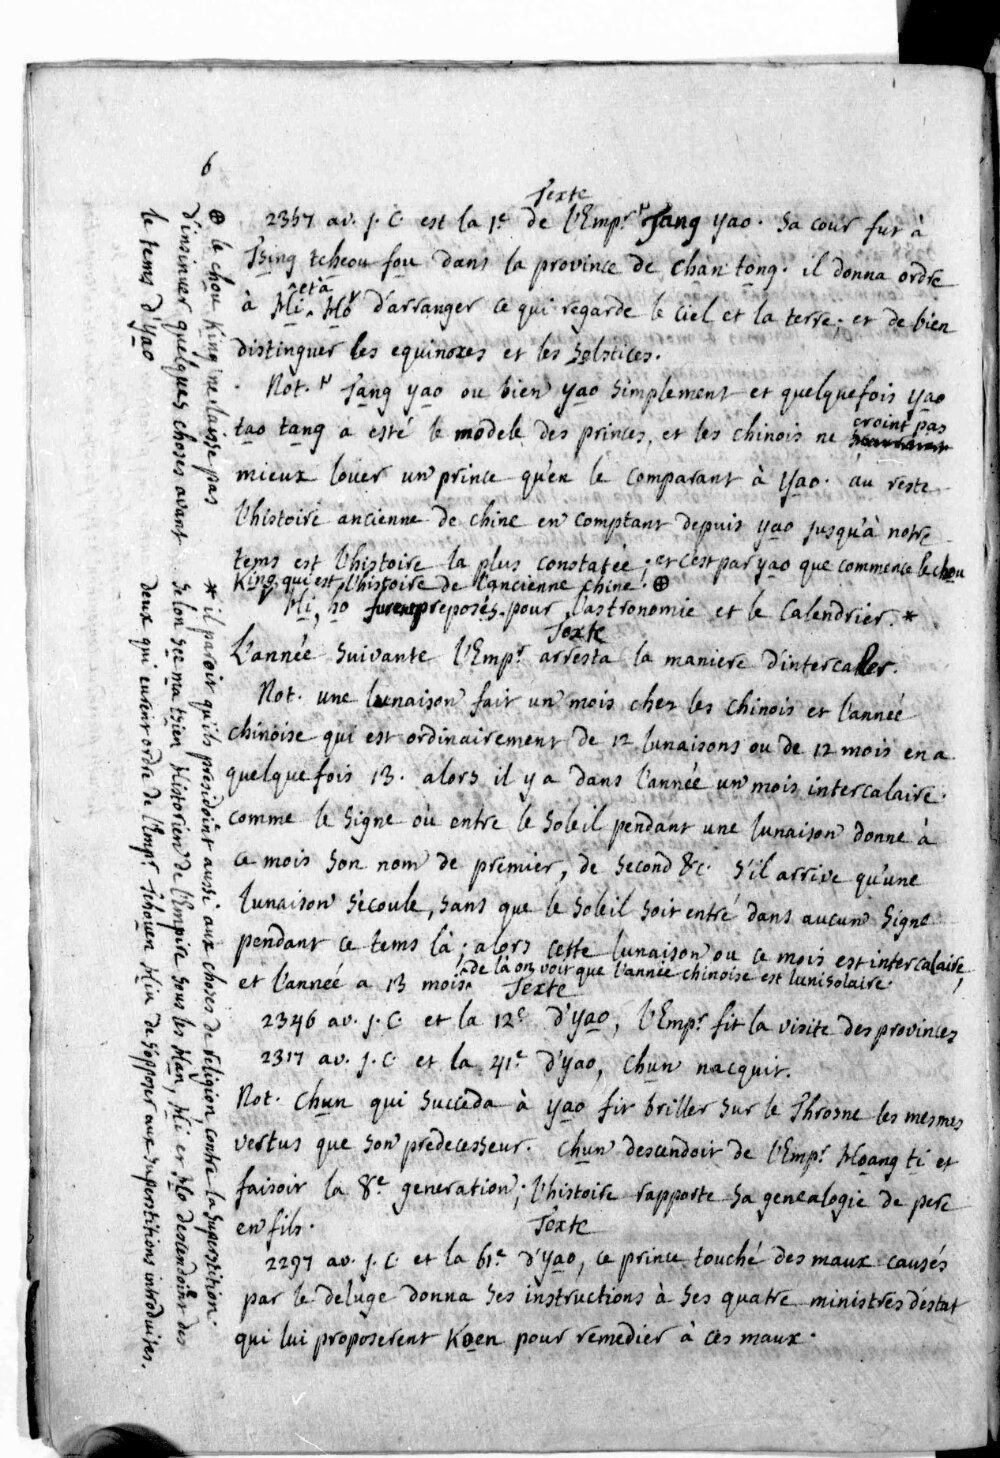 6
Texte
2357 av. J. C est la 1e de l'Empr. Tang yao. Sa cour fut à
Tsing tcheou fou dans la province de chan tong. il donna ordre
à Hi et à Ho d'arranger ce qui regarde le ciel et la terre. et de bien
distinguer les equinoxes et les solstices.
Not. Tang yao ou bien yao simplement et quelquefois yao
tao tang a esté le modele des princes, et les chinois ne croint pas
mieux louer un prince qu'en le comparant à yao. au reste
l'histoire ancienne de chine en comptant depuis yao jusqu'à notre
tems est l'histoire la plus constatée; et c'est par yao que commence le chou
King qui est l'histoire de l'ancienne chine. ⊕
Hi, ho furent preposés pour l'astronomie et le calendrier. *
Texte
L'année suivante l'Empr. arresta la maniere d'intercaler.
Not. une lunaison fait un mois chez les chinois et l'année
chinoise qui est ordinairement de 12 lunaisons ou de 12 mois en a
quelquefois 13. alors il y a dans l'année un mois intercalaire.
comme le signe où entre le soleil pendant une lunaison donne à
ce mois son nom de premier, de second &c. s'il arrive qu'une
lunaison s'ecoule, sans que le soleil soit entré dans aucun signe
pendant ce tems là; alors cette lunaison ou ce mois est intercalaire,
et l'année a 13 mois. de là on voit que l'année chinoise est lunisolaire.
Texte
2346 av. J. C et la 12e d'yao, l'Empr. fit la visite des provinces
2317 av. J. C. et la 41e d'yao, Chun nacquit.
Not. Chun qui succeda à yao fit briller sur le Throsne les mesmes
vertus que son predecesseur. Chun descendoit de l'Empr. Hoang ti et
faisoit la 8e generation; l'histoire rapporte sa genealogie de pere
en fils.
Texte
2297 av. J. C. et la 61e d'yao, ce prince touché des maux causés
par le deluge donna ses instructions à ses quatre ministres d'estat
qui lui proposerent Koen pour remedier à ces maux.
⊕ le chou King ne laisse pas
d'insinuer quelques choses avant
le tems d'yao
* il paroit qu'ils presidoint aussi aux choses de religion, contre la superstition.
selon See ma tsien Historien de l'Empire sous les Han, Hi et Ho descendoint des
deux qui eurent ordre de l'Empr. Tchouen Hiu de s'opposer aux superstitions introduites.